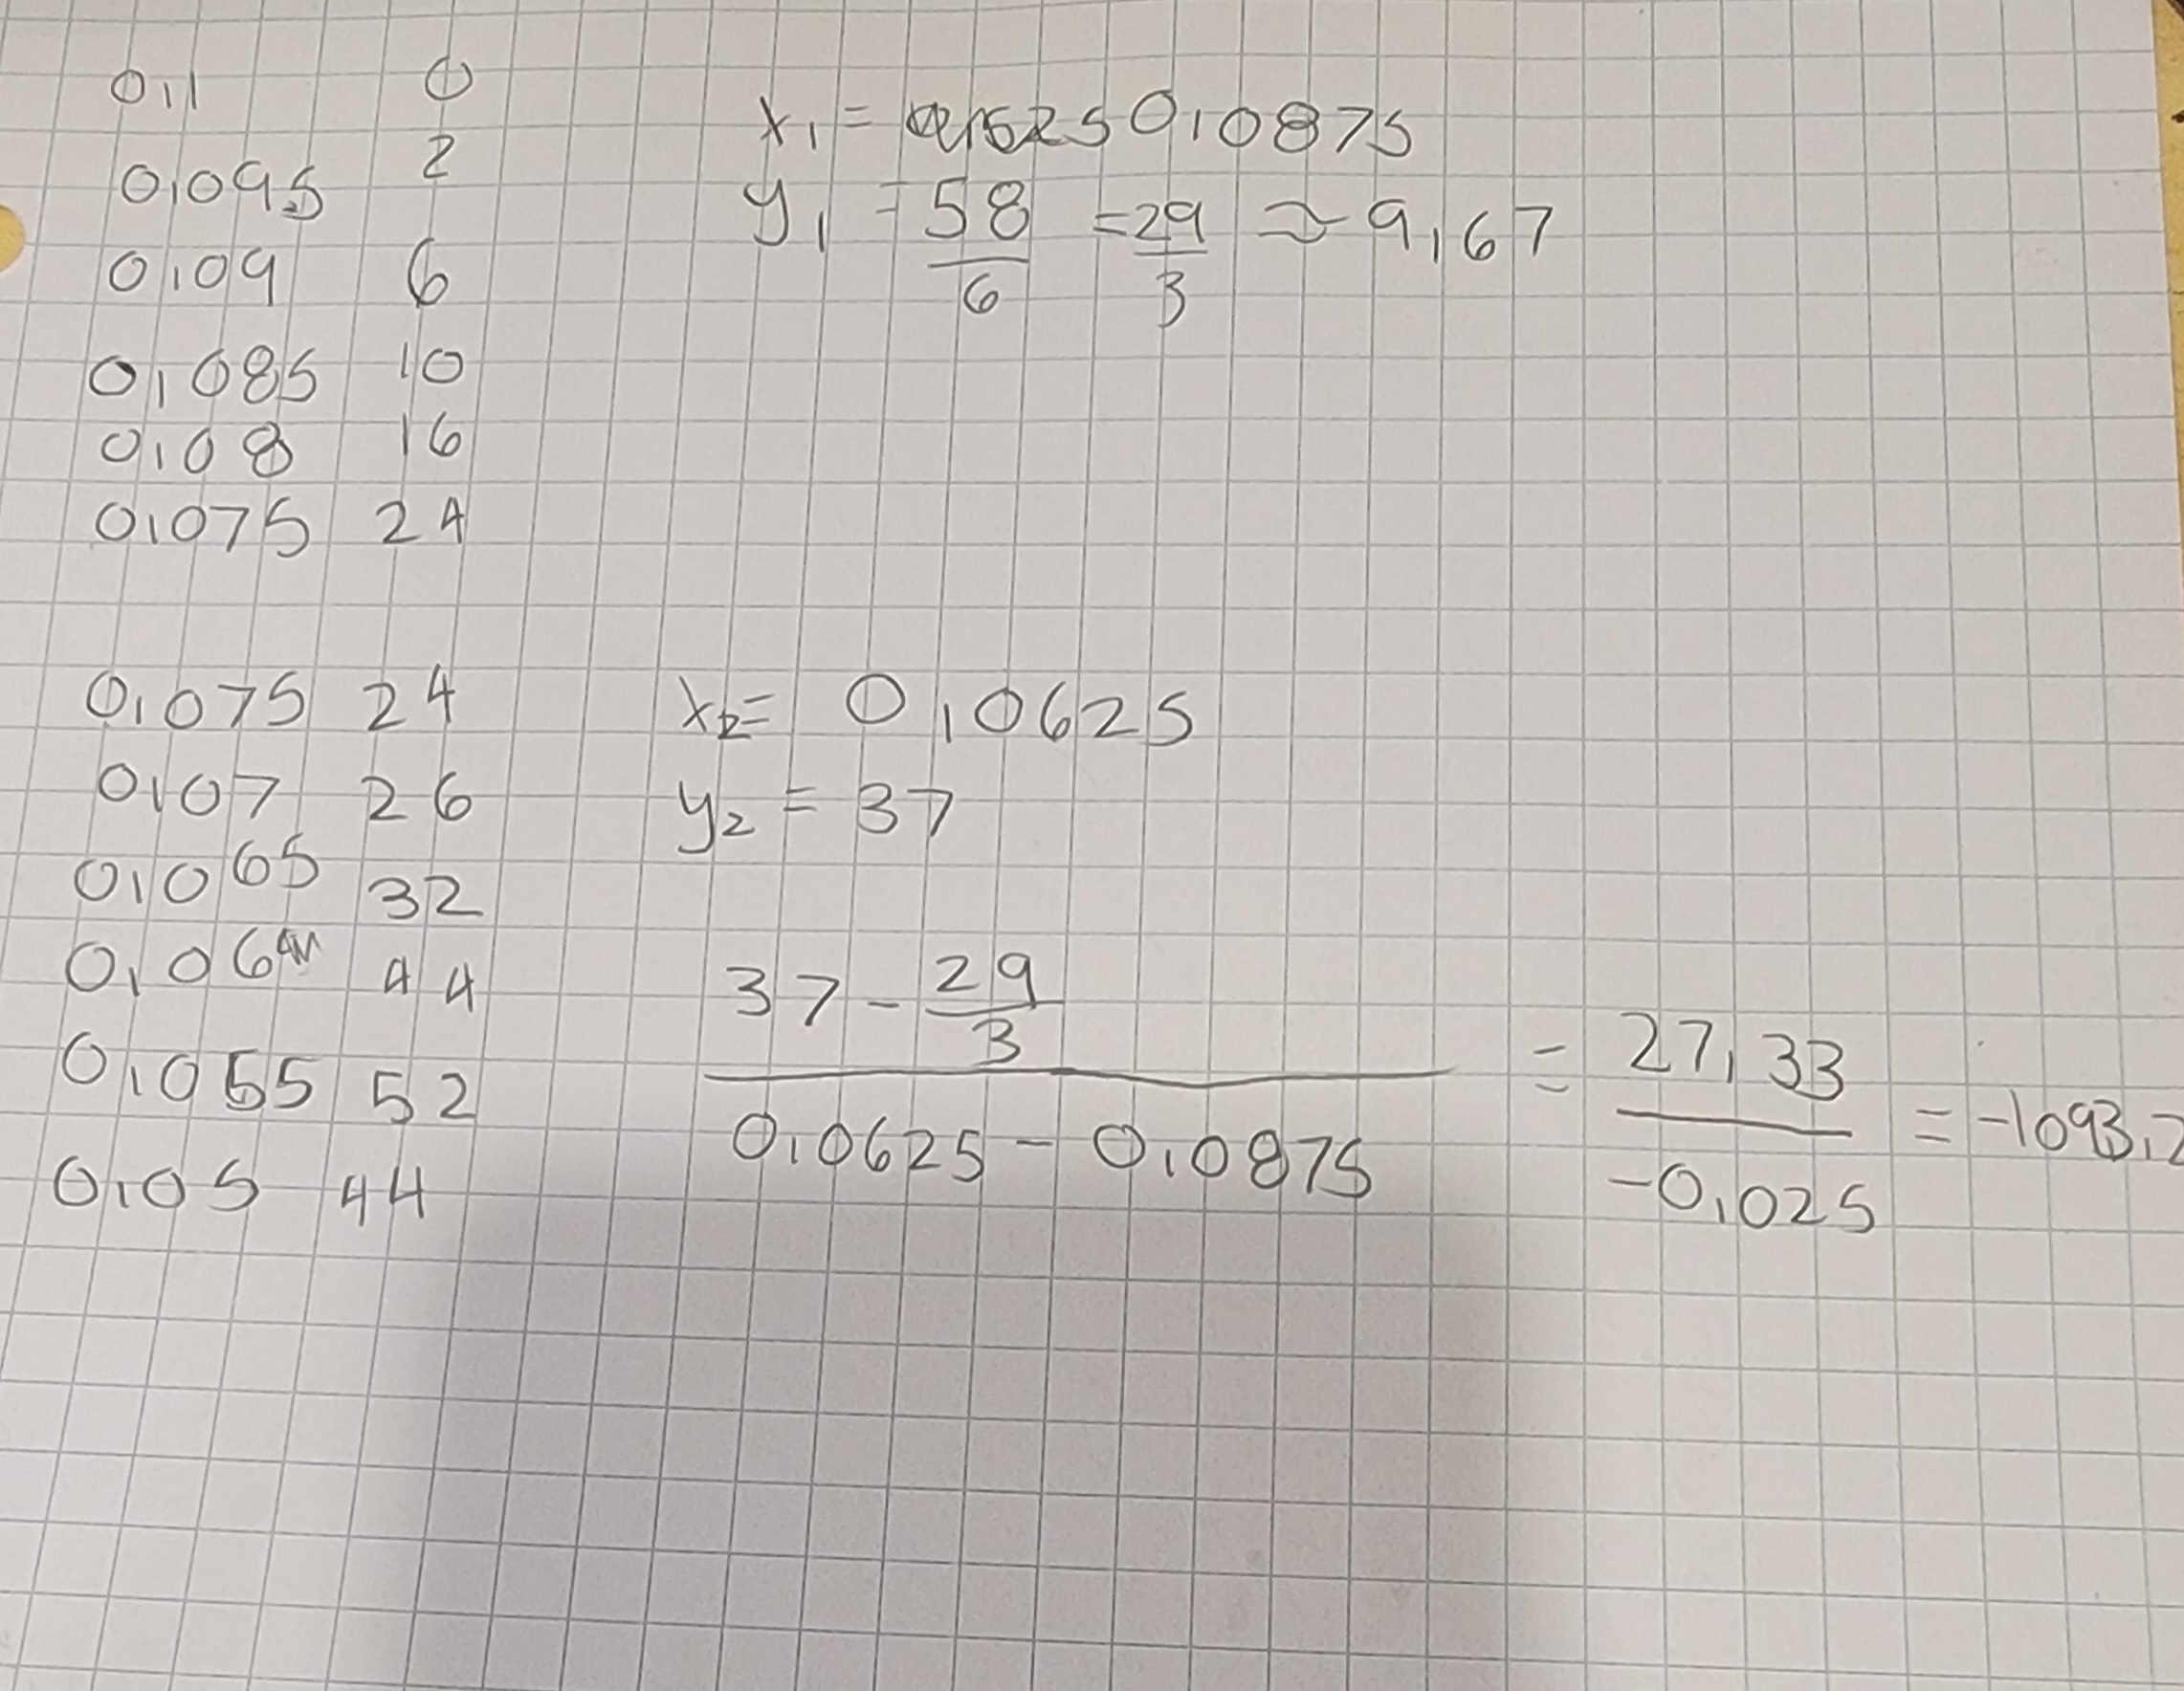 0,1 0
0,095 2
0,09 6
0,085 10
0,08 16
0,075 24
x₁ = 0,0875
y₁ = 58/6 = 29/3 ≈ 9,67
0,075 24
0,07 26
0,065 32
0,06 44
0,055 52
0,05 44
x₂ = 0,0625
y₂ = 37
37 - 29/3
0,0625 - 0,0875
= 27,33 / -0,025 = -1093,2